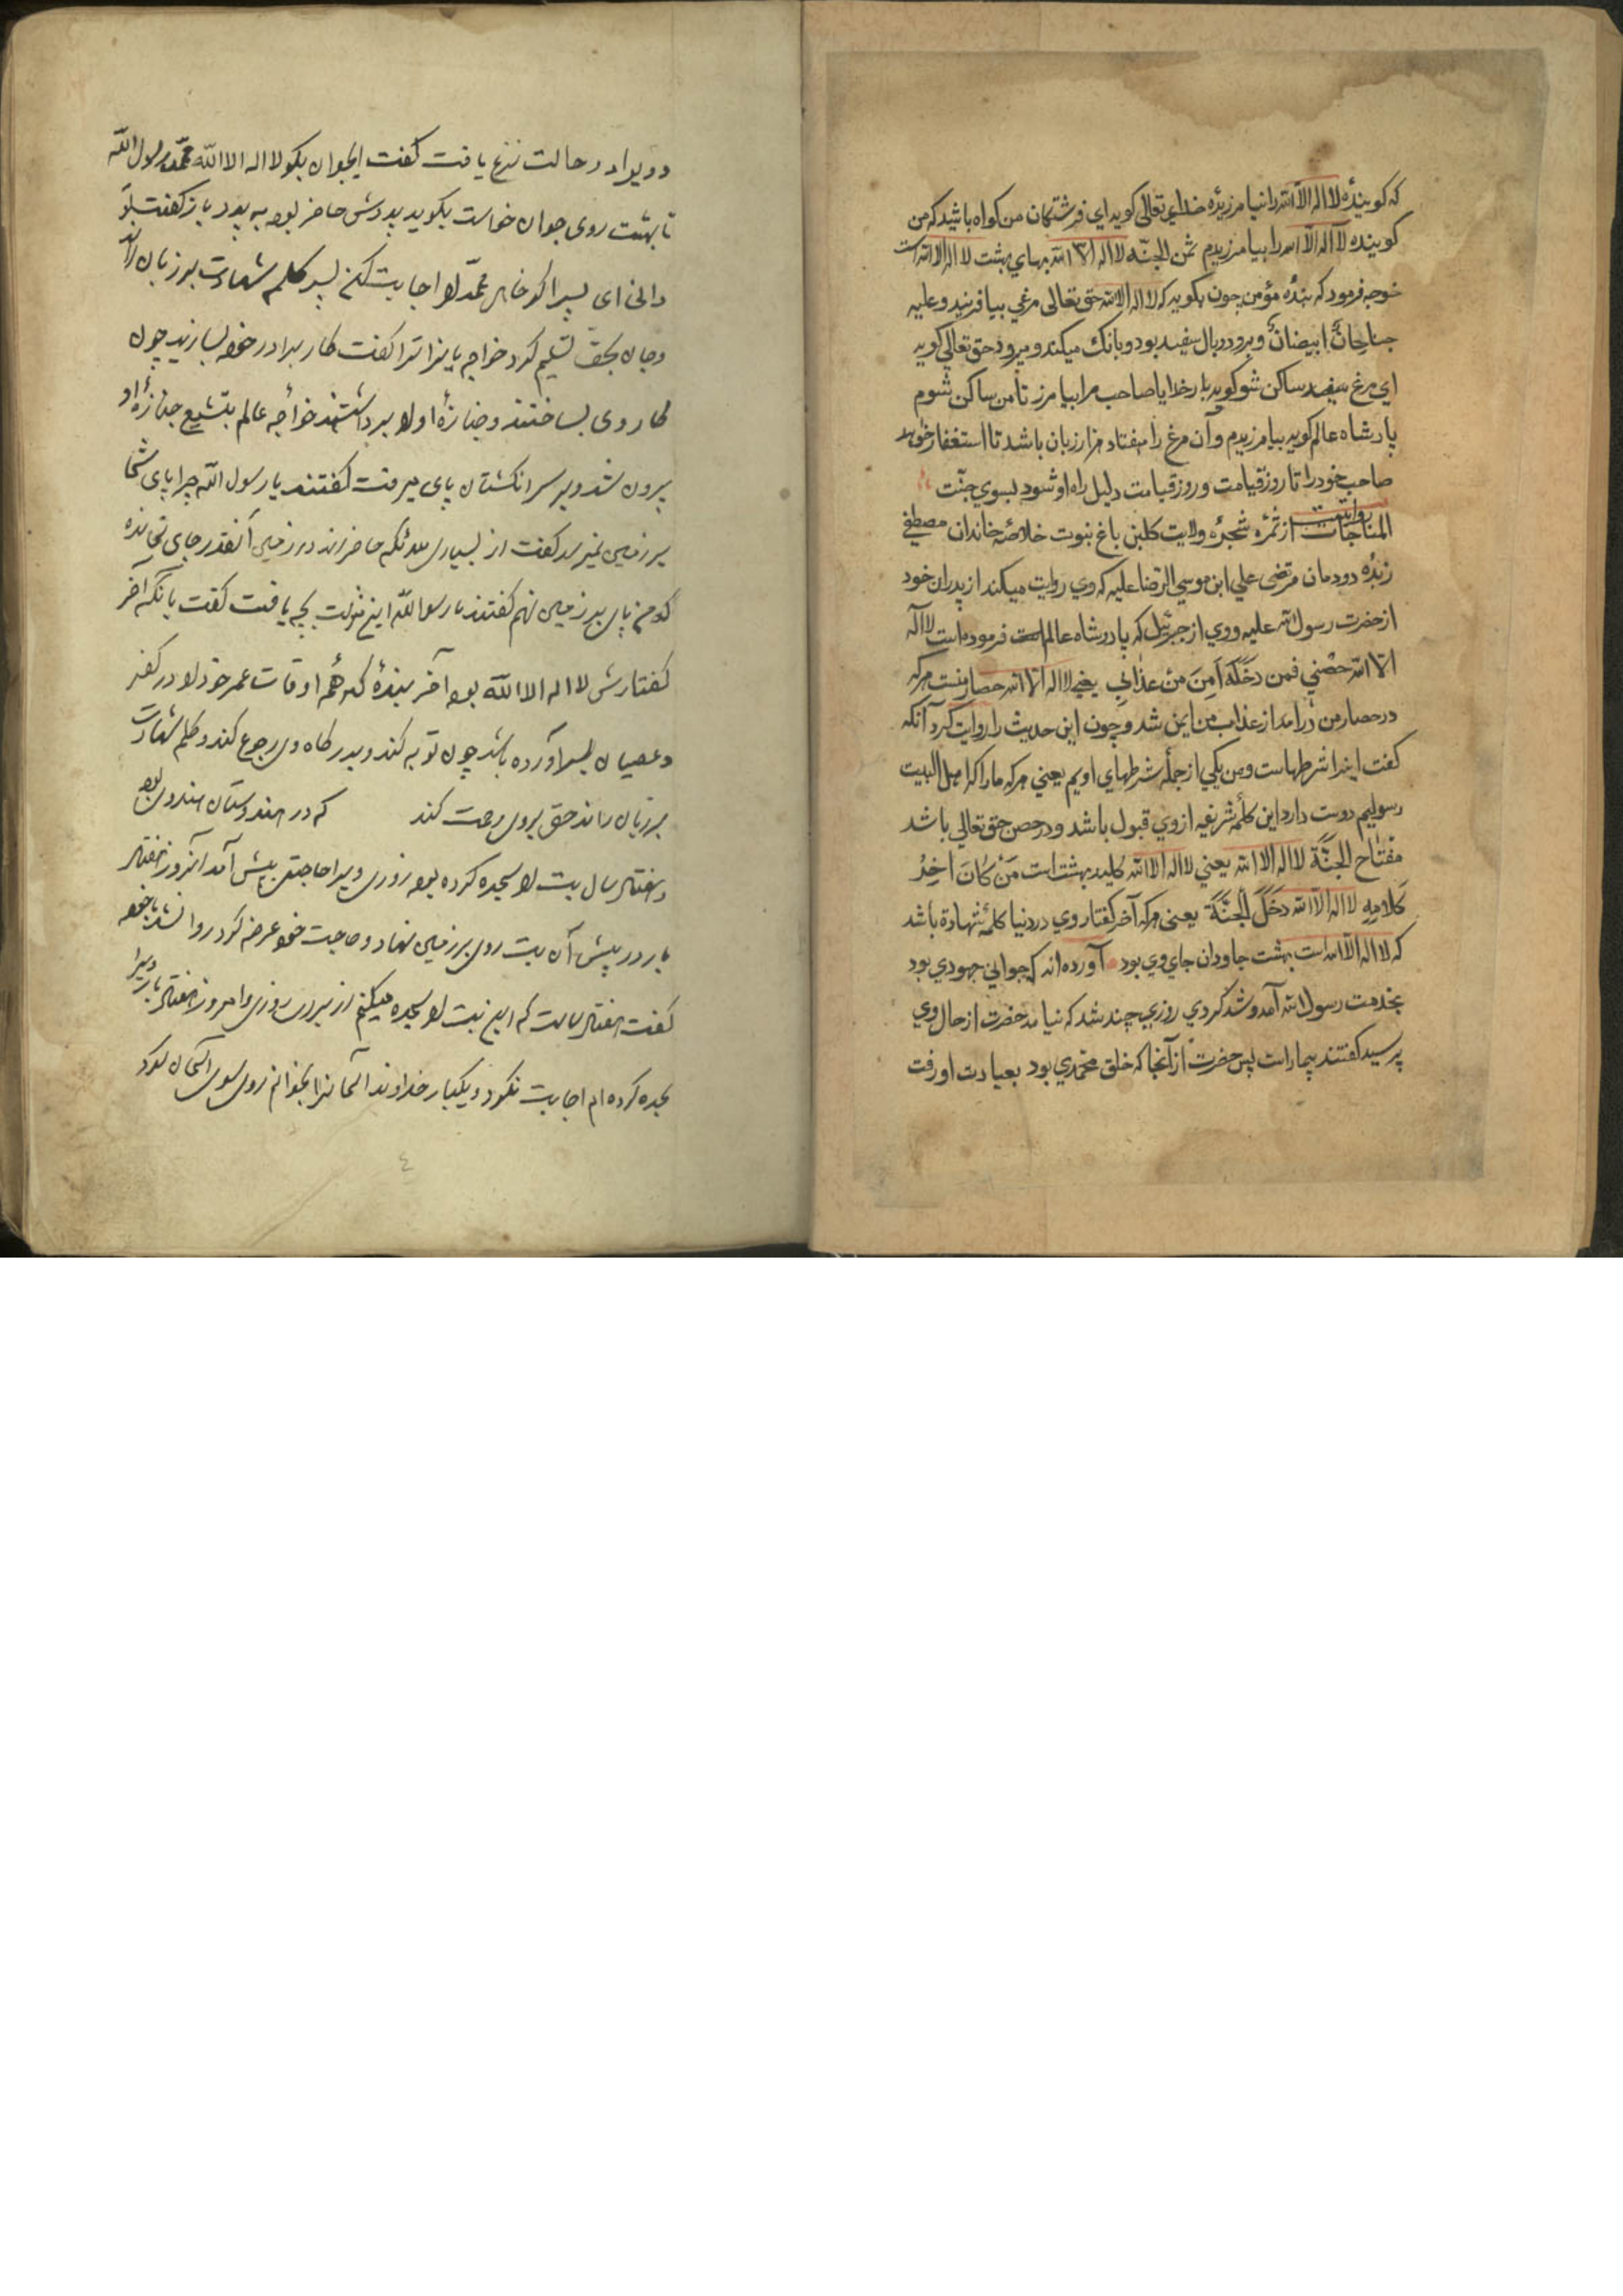 که کوینده لا اله الا الله را نیامرزیده خدای تعالی کوید ای فرشتکان من کواه باشید که من
کوینده لا اله الا الله را بیامرزیدم ثمن الجنّه لا اله الا الله بهای بهشت لا اله الا الله است
خوجه فرمود که بنده مؤمن چون بکوید که لا اله الا الله حق تعالی مرغی بیافریند و علیه
جناحان ابیضان و برو دو بال سفید بود و بانک میکند و میرود حق تعالی کوید
ای مرغ سفید ساکن شو کوید بار خدایا صاحب مرا بیامرز تا من ساکن شوم
پادشاه عالم کوید بیامرزیدم و آن مرغ را هفتاد هزار زبان باشد تا استغفار خواهد
صاحب خود را تا روز قیامت و روز قیامت دلیل راه او شود بسوی جنّت
المناجات روایتست از ثمره شجره ولایت کلبن باغ نبوت خلاصه خاندان مصطفی
زبده دودمان مرتضی علی ابن موسی الرضا علیه که وی روایت میکند از پدران خود
از حضرت رسول الله علیه و وی از جبرئیل که پادشاه عالم است فرموده است لا اله
الا الله حصنی فمن دخله امن من عذابی یعنی لا اله الا الله حصار منست هرکه
در حصار من درامد از عذاب من ایمن شد و چون این حدیث را روایت کرد آنکه
کفت اینرا شرطهاست و من یکی از جملهٔ شرطهای اویم یعنی هرکه ما را که اهل البیت
رسولیم دوست دارد این کلمه شریفه از وی قبول باشد و در حصن حق تعالی باشد
مفتاح الجنّة لا اله الا الله یعنی لا اله الا الله کلید بهشت است مَنْ کانَ اخِرُ
کَلامِهِ لا اله الا الله دَخَلَ الجَنَّةَ یعنی هرکه آخر کفتار وی در دنیا کلمه شهادة باشد
که لا اله الا الله است بهشت جاودان جای وی بود آورده اند که جوانی جهودی بود
بخدمت رسول الله آمد و شد کردی روزی چند شد که نیامد حضرت از حال وی
پرسید کفتند بیمار است پس حضرت از آنجا که خلق محمدی بود بعیادت او رفت
و ویرا در حالت نزع یافت کفت ایجوان بکو لا اله الا الله محمّد رسول الله
تا بهشت روی جوان خواست بکوید پدرش حاضر بود به پدر باز کفت
دانی ای پسر اکر خاهی محمّد را اجابت کن پسر کلمه شهادت بر زبان راند
و جان بحق تسلیم کرد خواجه یاران را کفت کار برادر خود بسازید چون
کار وی بساختند و جنازه او را برداشتند خواجه عالم بتشییع جنازه او
بیرون شد و بر سر انکشتان پای میرفت کفتند یا رسول الله چرا پای شما
بر زمین نمیرسد کفت از بسیاری ملائکه حاضراند در زمین آنقدر جای نمانده
که من پای بر زمین نهم کفتند یا رسول الله این منزلت بچه یافت کفت بانکه آخر
کفتارش لا اله الا الله بود آخر بنده که همه اوقات عمر خود را در کفر
و عصیان بسر آورده باشد چون توبه کند و بدرکاه وی رجوع کند و کلمه شهادت
بر زبان راند حق بروی رحمت کند که در هندوستان هندوی بود
و هفتاد سال بت را سجده کرده بود روزی ویرا حاجتی پیش آمد آنروز هفتاد
بار در پیش آن بت روی بر زمین نهاد و حاجت خود عرضه کرد روا نشد با خود
کفت هفتاد سالست که این بت را سجده میکنم از برای روزی و امروز هفتاد بار ویرا
سجده کرده ام اجابت نکرد و یکبار خداوند آسمانرا بخوانم روی سوی آسمان کرد
٤